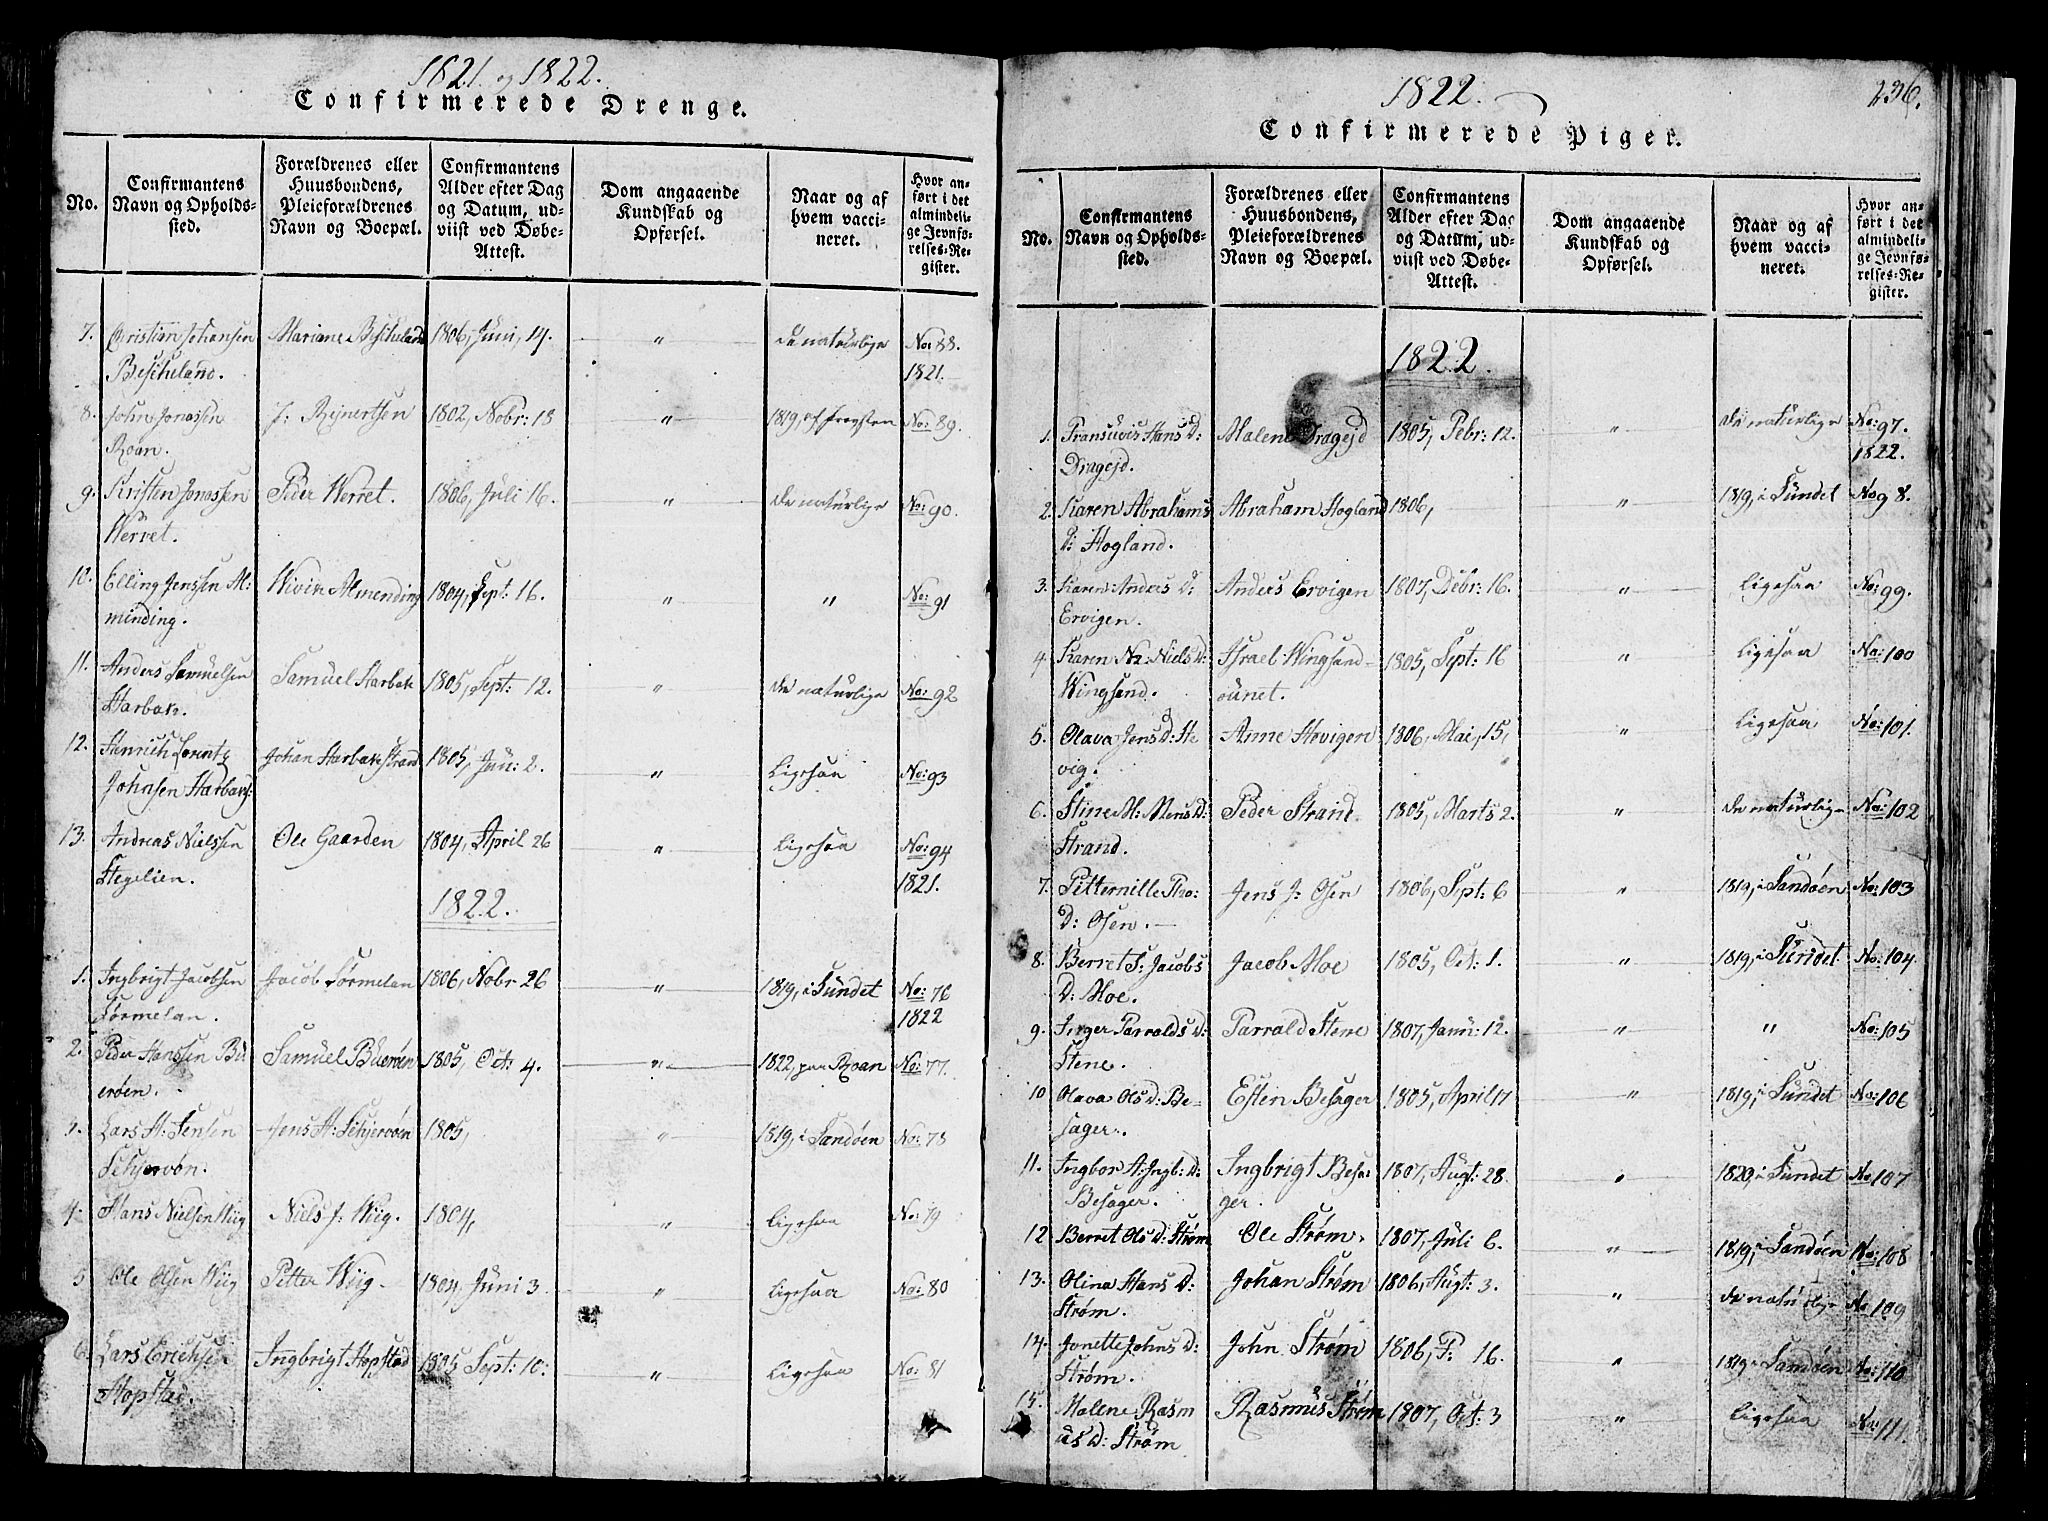 1821. og 1822.
Confirmerede Drenge.
No.
Confirmantens Navn og Opholdssted.
Forældrenes eller Huusbondens, Pleieforældrenes Navn og Boepæl.
Confirmantens Alder efter Dag og Datum, udviist ved Døbe-Attest.
Dom angaaende Kundskab og Opførsel.
Naar og af hvem vaccineret.
Hvor anført i det almindelige Jevnførelses-Register.
7. Christian Johansen Mariane Bescheland 1806, Juni, 14. " De naturlige No: 88.
Bescheland. 1821.
8. John Jonassen J: Rejnertsen 1802, Nobr: 13 " 1819, af No: 89.
Roan.
9. Kristen Jonassen Peder Werret. 1806, Juli 16. " De naturlige No: 90.
Werret.
10. Elling Jenssen Al: Wivik Almending 1804, Sept: 16. " " No: 91
minding.
11. Anders Samuelsen Samuel Harbak 1805, Sept: 12. " De naturlige No: 92
Harbak.
12. Henrich Lorentz Johan Harbak Strand 1805, Jan: 2. " Ligesaa No: 93
Johnsen Harbak:
13. Andreas Nielssen Ole Gaarden 1804, April 26 " Ligesaa No: 94
Stegelien. 1821.
1822.
1. Ingbrigt Jacobsen Jacob Sørmelan 1806, Nobr 26 " 1819, i Sundet No: 76
Sørmelan. 1822
2. Peder Hanssen Bu Samuel Buerøen 1805, Oct: 4. " 1822, paa Roan No: 77.
erøen.
3. Lars H: Jensen Jens H: Schjervøn 1805, " 1819, i Sandøen No: 78
Schjervøn.
4. Hans Nielsen Wiig Niels J: Wiig. 1804, " Ligesaa No: 79
5 Ole Olsen Wiig Petter Wiig. 1804, Juni 3. " Ligesaa No: 80
6. Lars Erichsen Ingbrigt Hopstad 1805 Sept: 10: " Ligesaa No: 81
Hopstad.
1822.
236.
Confirmerede Piger.
No.
Confirmantens Navn og Opholdssted.
Forældrenes eller Huusbondens, Pleieforældrenes Navn og Boepæl.
Confirmantens Alder efter Dag og Datum, udviist ved Døbe-Attest.
Dom angaaende Kundskab og Opførsel.
Naar og af hvem vaccineret.
Hvor anført i det almindelige Jevnførelses-Register.
1822.
1. Hans D: Malene Dragejd 1805, Febr: 12. " De naturlige No: 97.
Dragejd. 1822.
2. Karen Abrahams Abraham Hogland 1806, " 1819, i Sundet No 98.
D: Hogland.
3. Karen Anders D: Anders Ervigen 1807, Debr: 16. " Ligesaa No: 99.
Ervigen.
4. Karen Niels D: Israel Wingsand- 1805, Sept: 16 " Ligesaa No: 100
Wingsand. ounet.
5. Olava Jens D: Ho Anne Hovigen 1806, Mai, 15, " Ligesaa No: 101.
vig.
6. Stine M: Mons D: Peder Strand 1805, Marts 2. " De naturlige No: 102
Strand.
7. Petternille Tho: Jens J: Osen 1806, Sept: 6 " 1819, i Sandøen No: 103
D: Osen.
8. Berret S: Jacobs Jacob Moe 1805, Oct: 1. " 1819, i Sundet No: 104.
D: Moe.
9. Inger Parralds D: Parrald Stene 1807, Janu: 12. " " No: 105
Stene.
10 Olava Ols D: Be- Esten Besager 1805, April 17 " 1819, i Sundet No: 106
sager.
11. Ingbor A: Ingb: D: Ingbrigt Besa- 1807, Augt: 28. " 1820, i Sundet No 107
Besager. ger.
12 Berret Ols D: Strøm Ole Strøm. 1807, Juli 6. " 1819, i Sandøen No: 108
13. Olina Hans D: Johan Strøm 1806, Augt: 3. " De naturlige No 109
Strøm.
14. Jonette Johns D: John Strøm 1806, F: 16. " 1819 i Sandøen No: 110
Strøm.
15. Malene Rasm Rasmus Strøm 1807, Oct: 3 " Ligesaa No: 111.
us D: Strøm